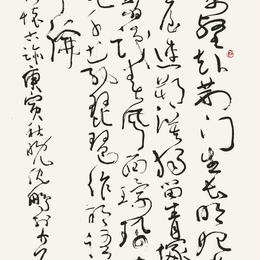 壑赴荆门生长明妃
台连朔漠独留青冢
省识春风面环珮
载琵琶作胡语
论
怀古迹庚寅秋晚沈鹏